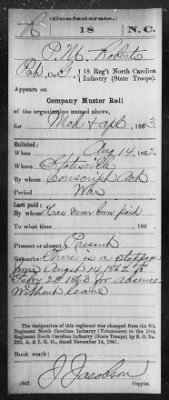 (Confederate.)
R 18 N.C.
P. M. Roberts
Pvt, Co. , 18 Reg't North Carolina
Infantry (State Troops).
Appears on
Company Muster Roll
of the organization named above,
for Mch & Apl, 1863
Enlisted:
When Aug 14, 1862
Where Statesville
By whom Conscript Act
Period War
Last paid:
By whom Has never been paid
To what time , 186 .
Present or absent Present
Remarks: There is a stoppage
from August 14, 1862 to
Feby 28 1863 for absence
without leave
The designation of this regiment was changed from the 8th
Regiment North Carolina Infantry (Volunteers) to the 18th
Regiment North Carolina Infantry (State Troops) by S. O. No.
222, A. & I. G. O., dated November 14, 1861.
Book mark:
J. Jacobson
(642) Copyist.